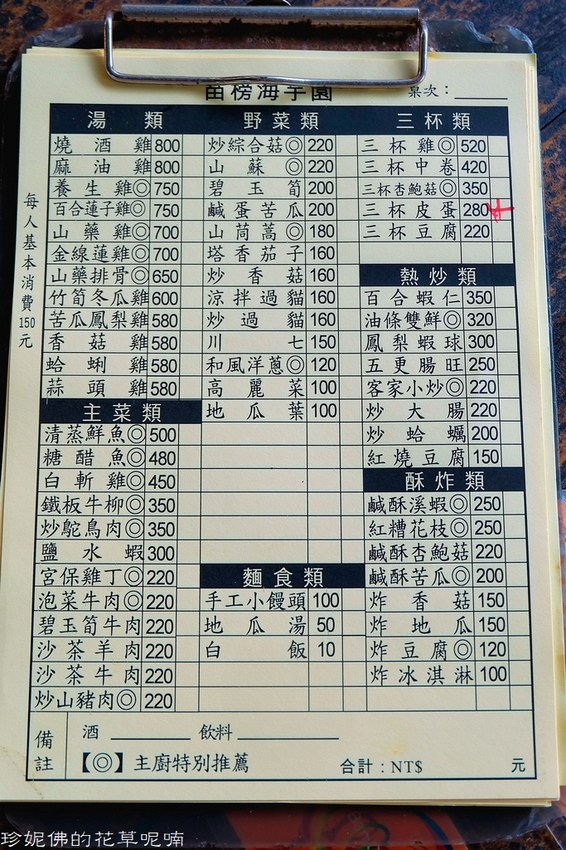 苗榜海芋園
桌次：
每人基本消費150元
湯類
燒酒雞 800
麻油雞 800
養生雞◎ 750
百合蓮子雞◎ 750
山藥雞◎ 700
金線蓮雞◎ 700
山藥排骨◎ 650
竹筍冬瓜雞 600
苦瓜鳳梨雞 580
香菇雞 580
蛤蜊雞 580
蒜頭雞 580
主菜類
清蒸鮮魚◎ 500
糖醋魚◎ 480
白斬雞◎ 450
鐵板牛柳◎ 350
炒鴕鳥肉◎ 350
鹽水蝦 300
宮保雞丁◎ 220
泡菜牛肉◎ 220
碧玉筍牛肉 220
沙茶羊肉 220
沙茶牛肉 220
炒山豬肉◎ 220
野菜類
炒綜合菇◎ 220
山蘇◎ 220
碧玉筍 200
鹹蛋苦瓜 200
山茼蒿◎ 180
塔香茄子 160
炒香菇 160
涼拌過貓 160
炒過貓 160
川七 150
和風洋蔥◎ 120
高麗菜 100
地瓜葉 100
麵食類
手工小饅頭 100
地瓜湯 50
白飯 10
三杯類
三杯雞◎ 520
三杯中卷 420
三杯杏鮑菇◎ 350
三杯皮蛋 280
三杯豆腐 220
熱炒類
百合蝦仁 350
油條雙鮮◎ 320
鳳梨蝦球 300
五更腸旺 250
客家小炒◎ 220
炒大腸 220
炒蛤蠣 200
紅燒豆腐 150
酥炸類
鹹酥溪蝦◎ 250
紅糟花枝◎ 250
鹹酥杏鮑菇 220
鹹酥苦瓜◎ 200
炸香菇 150
炸地瓜 150
炸豆腐◎ 120
炸冰淇淋 100
備註
酒 飲料
【◎】主廚特別推薦 合計：NT$ 元
珍妮佛的花草呢喃